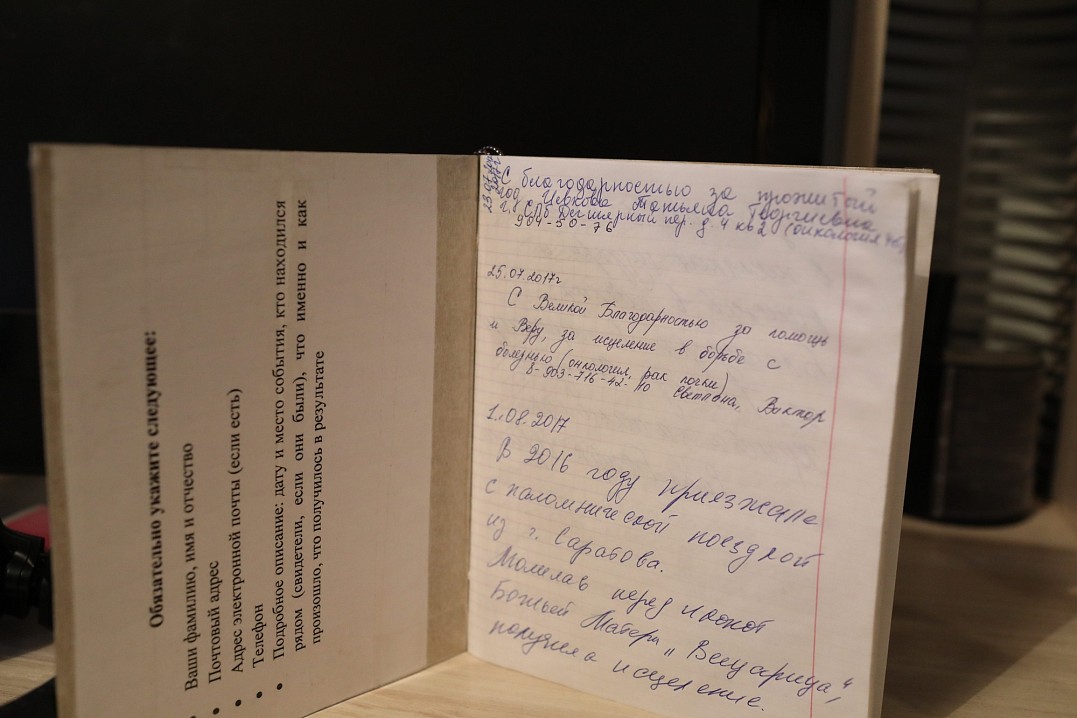 Обязательно укажите следующее:
Ваши фамилию, имя и отчество
Почтовый адрес
Адрес электронной почты (если есть)
Телефон
Подробное описание: дату и место события, кто находился
рядом (свидетели, если они были), что именно и как
произошло, что получилось в результате
С благодарностью за прожитый
год Татьяна Георгиевна
СПб Дегтярный пер. д. 4 кв 2 (онкология
964-50-76
25.07.2017г
С Великой Благодарностью за помощь
и Веру, за исцеление в борьбе с
болезнью (онкология, рак почки)
8-903-716-42-10 Светлана, Виктор
1.08.2017
В 2016 году приезжала
с паломнической поездкой
из г. Саратова.
Молилась перед иконой
Божьей Матери „Всецарица“,
получила исцеление.